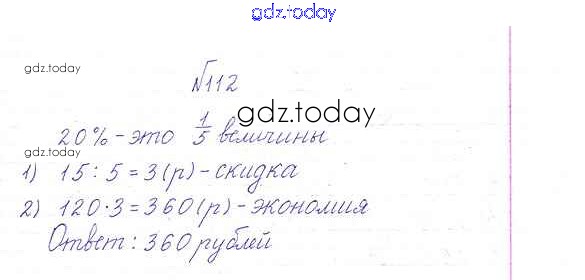 gdz.today
gdz.today
№112
gdz.today
20% - это 1/5 величины
gdz.today
1) 15 : 5 = 3 (р) - скидка
2) 120 · 3 = 360 (р) - экономия
Ответ : 360 рублей